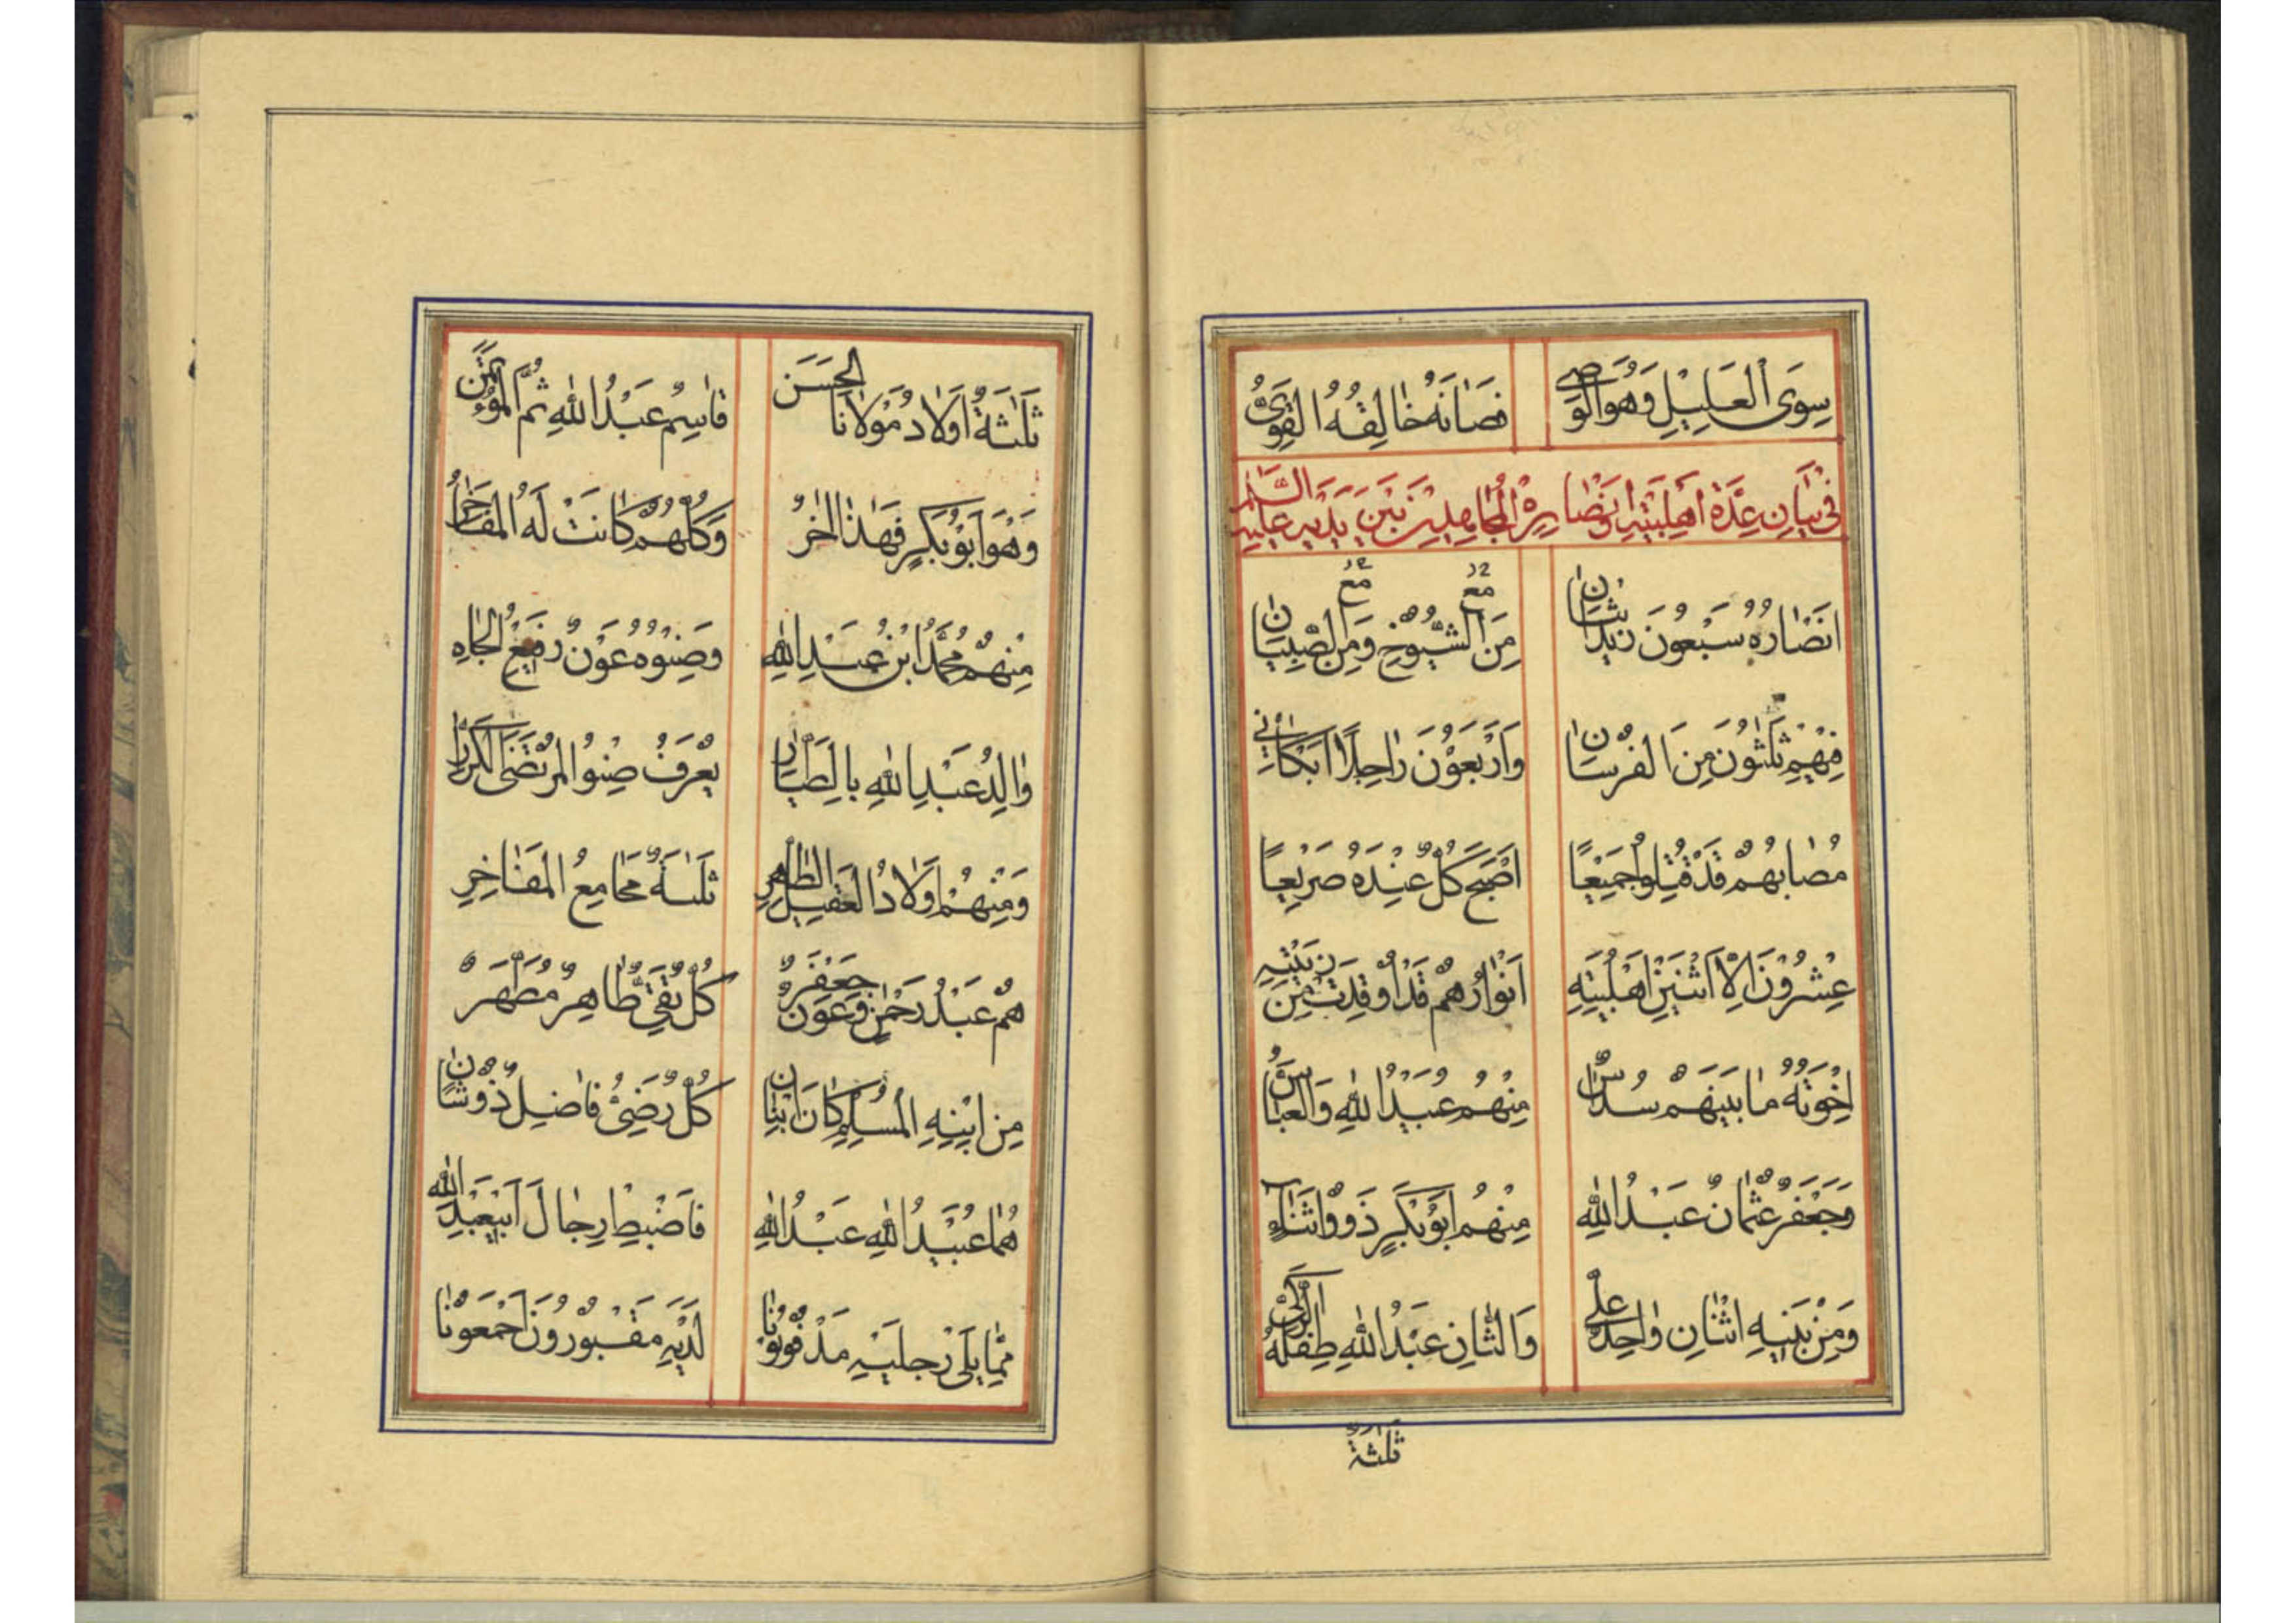 سِوَى الْعَلِيْلِ وَهُوَ الْوَصِي فَصَانَهُ خَالِقُهُ الْقَوِيُّ
فِي بَيَانِ عِدَّةِ اَهْلِبَيْتِهِ وَنُصَّارِهِ الْمُجَاهِدِيْنَ بَيْنَ يَدَيْهِ عَلَيْهِ السَّلٰمُ
اَنْصَارُهُ سَبْعُونَ مِنَ الشُّيُوْخِ وَمِنَ الصِّبْيَانِ
مع مع
فِمْنْهُمْ ثَلٰثُوْنَ مِنَ الْفُرْسَانِ وَاَرْبَعُوْنَ رَاجِلًا اَبْكَانِي
مُصَابُهُمْ قَدْ قُتِلُوْا جَمِيْعًا اَصْبَحَ كُلٌّ عِنْدَهُ صَرِيْعًا
عِشْرُوْنَ اِلَّا اثْنَيْنِ اَهْلُبَيْتِهِ اَنْوَارُهُمْ قَدْ اُوْقِدَتْ مِنْ زَيْتِهِ
اِخْوَتُهُ مَا بَيْنَهُمْ سُدَاسٌ مِنْهُمْ عُبَيْدُ اللهِ وَالْعَبَّاسُ
وَجَعْفَرٌ عُثْمَانُ عَبْدُ اللهِ مِنْهُمْ اَبُوْبَكْرٍ ذَوُو اثْنَاءِ
وَمِنْ بَنِيْهِ اثْنَانِ وَاحِدٌ عَلِيٌّ وَالثَّانِ عَبْدُ اللهِ طِفْلُهُ الزَّكِيُّ
ثَلٰثَةٌ
ثَلٰثَةٌ اَوْلَادُ مَوْلَانَا الْحَسَنِ قَاسِمُ عَبْدُ اللهِ ثُمَّ الْمُؤْتَمَنُ
وَهُوَ اَبُوْبَكْرٍ فَهٰذَا الْاٰخِرُ وَكُلُّهُمْ كَانَتْ لَهُ الْمَفَاخِرُ
مِنْهُمْ مُحَمَّدُ ابْنُ عَبْدِ اللهِ وَصِنْوُهُ عَوْنٌ رَفِيْعُ الْجَاهِ
وَالِدُ عَبْدِ اللهِ بِالطَّيَّارِ يُعْرَفُ صِنْوُ الْمُرْتَضَى الْكَرَّارِ
وَمِنْهُمْ اَوْلَادُ الْعَقِيْلِ الطَّاهِرِ ثَلٰثَةٌ مَجَامِعُ الْمَفَاخِرِ
هُمْ عَبْدُ رَحْمٰنِ وَعَوْنُ جَعْفَرٌ كُلٌّ تَقِيٌّ طَاهِرٌ مُطَهَّرٌ
مِنْ ابْنِهِ الْمُسْلِمِ كَانَ ابْنَانِ كُلٌّ رَضِيٌّ فَاضِلٌ ذُوْ شَانٍ
هُمَا عُبَيْدُ اللهِ عَبْدُ اللهِ فَاضْبِطْ رِجَالَ اَبِيْعَبْدِ اللهِ
مِمَّا يَلِيْ رِجْلَيْهِ مَدْفُوْنُوْنَا لَدَيْهِ مَقْبُوْرُوْنَ اَجْمَعُوْنَا